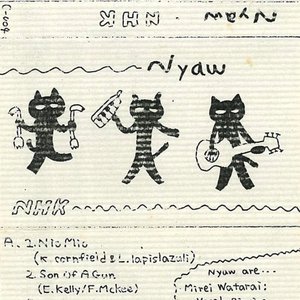 C-009
NHK
Nyaw
Nyaw
NHK
A. 1. Nio Mio
(K. cornfield & L. lapislazuli)
2. Son Of A Gun
(E. Kelly / F. McKee)
Nyaw are...
Mirei Watarai: